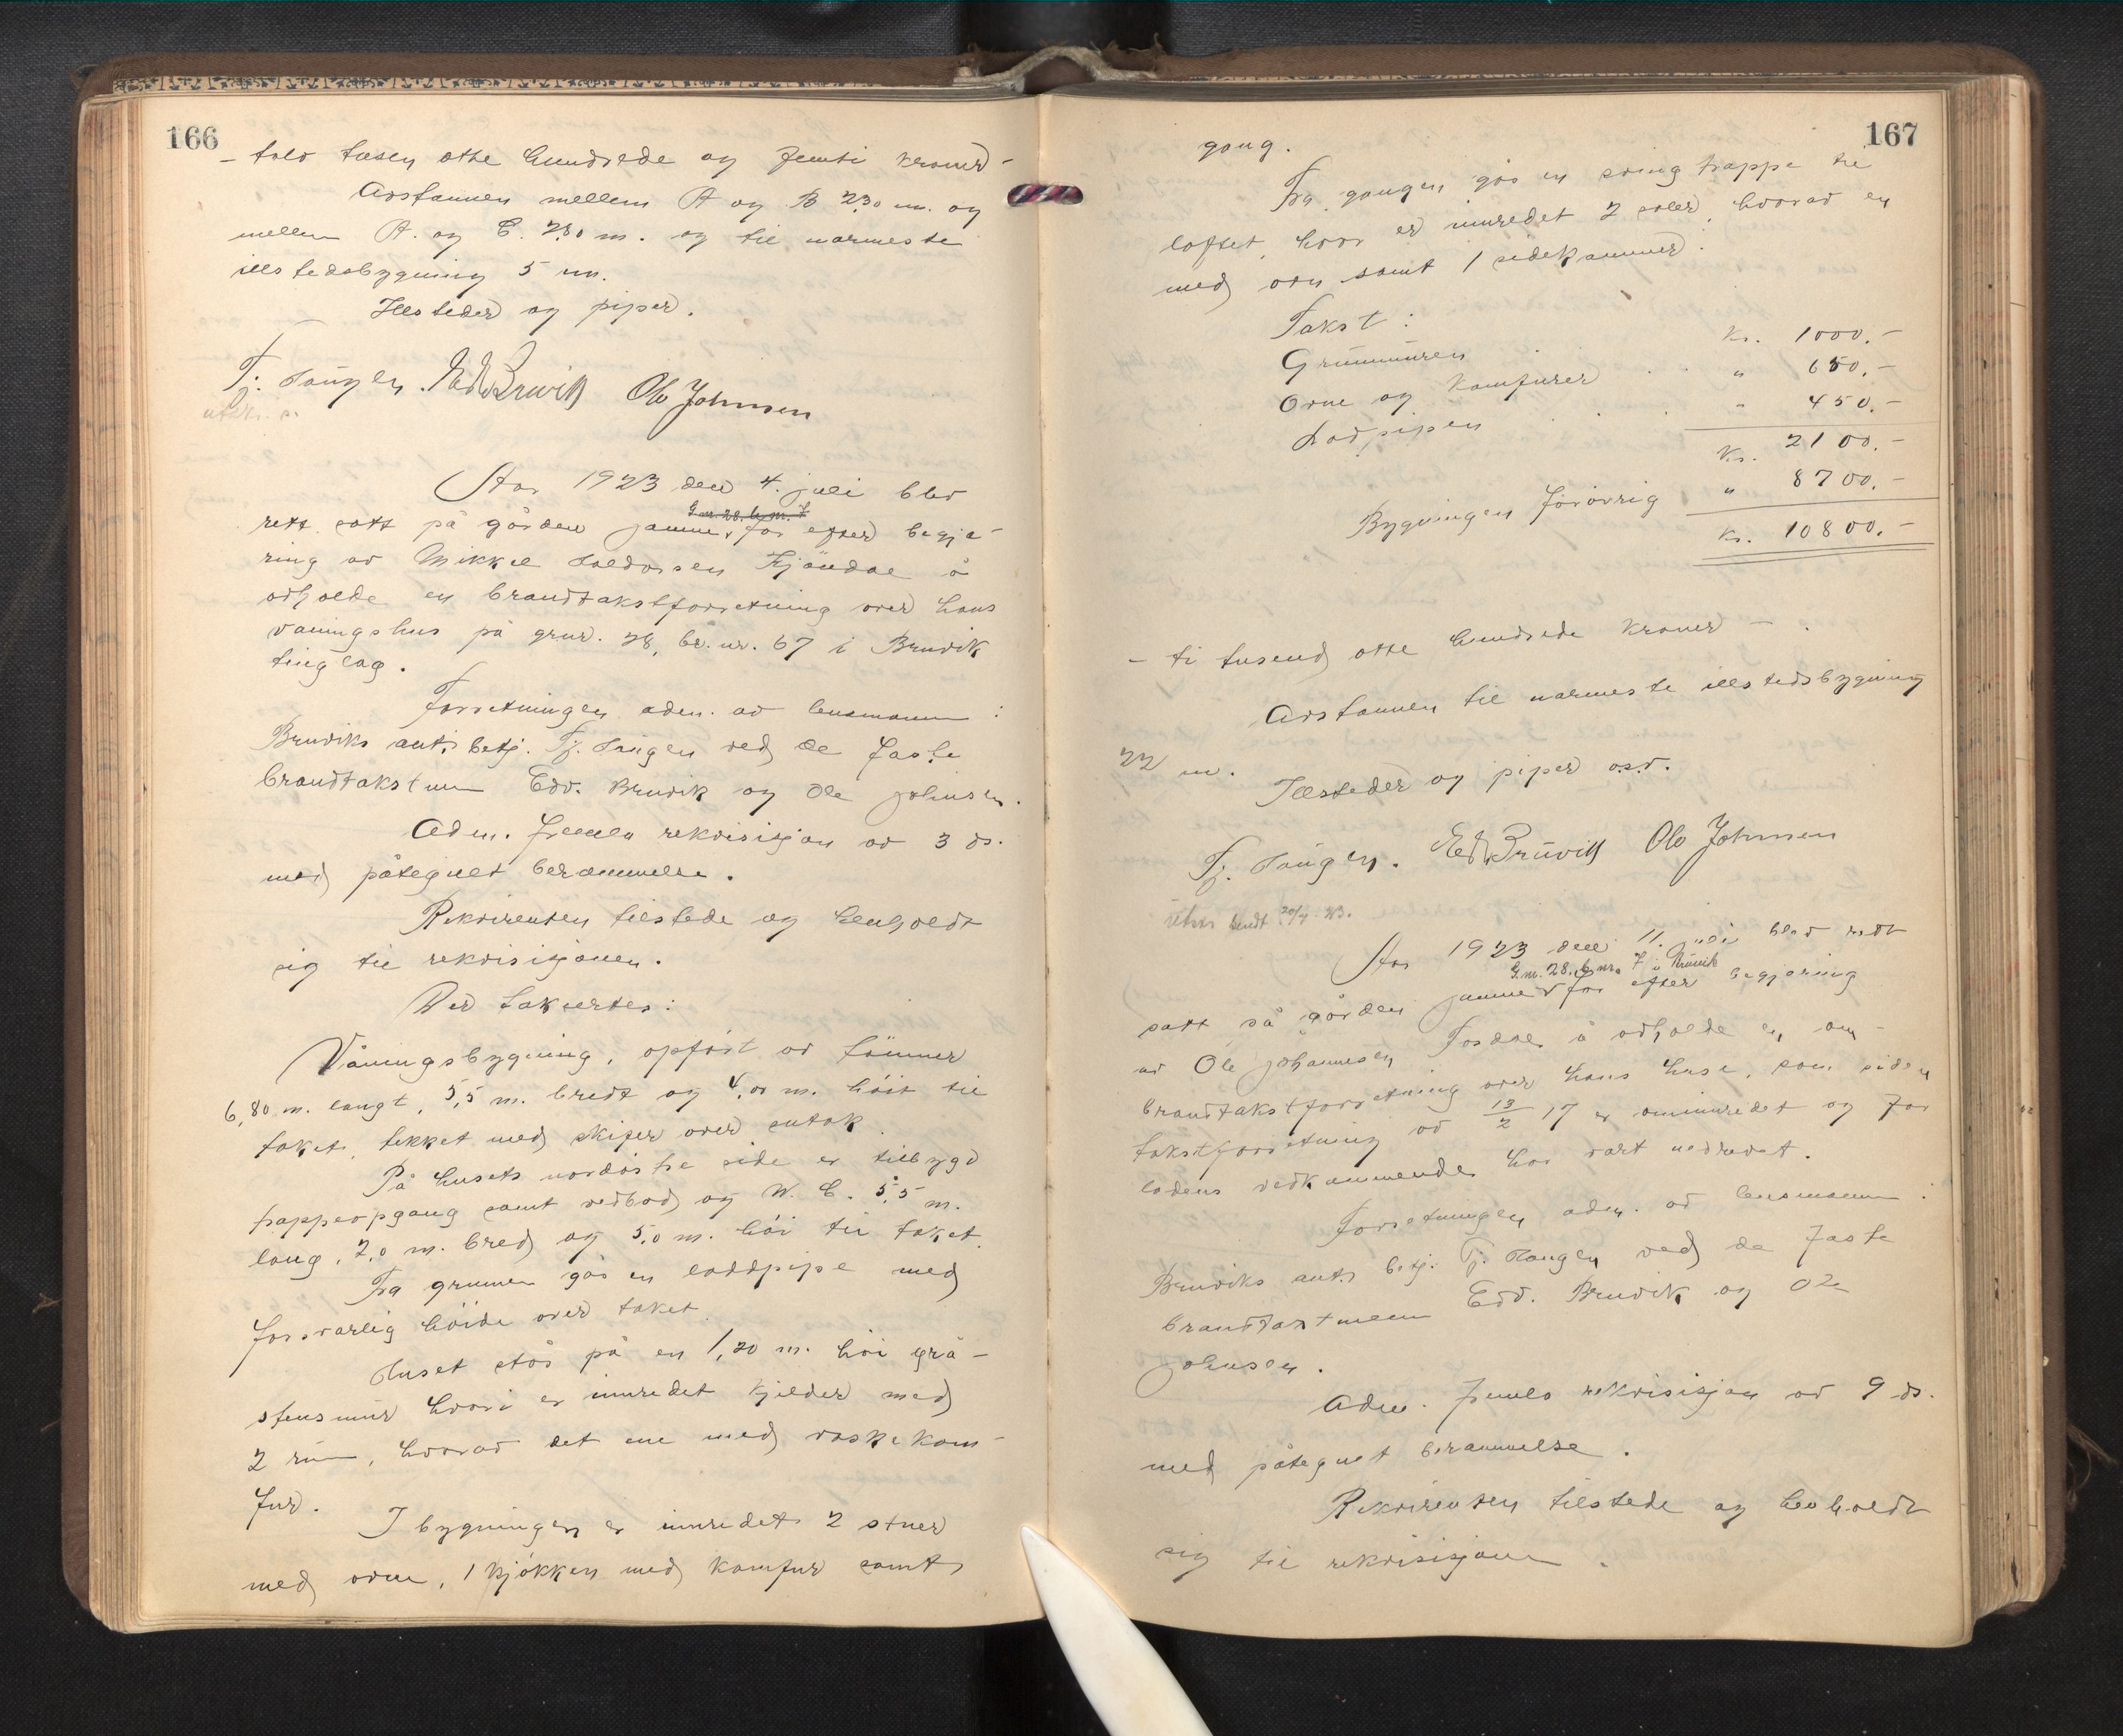 166
- tolv tusen otte hundrede og femti kroner -
Avstannen mellem A og B 2,30 m. og
mellem A. og C. 7,80 m. og til nærmeste
illstedsbygning 5 m.
Illsteder og piper.
Tj. Haugen. Edv Bruvik Ole Johnsen
utskr. s.
Aar 1923 den 4. juli blev
G.nr. 28. b.nr. 7
rett satt på gården Jamne v for efter begjæ-
ring av Mikkel Haldorsen Fjøsdal å
avholde en brandtakstforretning over hans
våningshus på grnr. 28, br.nr. 67 i Bruvik
tinglag.
Forretningen adm. av lensmannen i
Bruviks aut. betj. Tj. Haugen ved de faste
brandtakstmenn Edv. Bruvik og Ole Johnsen.
Adm. fremla rekvisisjon av 3 ds.
med påtegnet berammelse.
Rekvirenten tilstede og henholdt
sig til rekvisisjonen.
Der takseres:
Våningsbygning, opført av tømmer
6,80 m. langt, 5,5 m. bredt og 4,00 m. høit til
taket, tekket med skifer over sutak.
På husets nordøstre side er tilbygd
trappeopgang samt vedbod og W. C. 5,5 m.
lang, 2,0 m. bred og 5,0 m. høi til taket.
Fra grunnen går en loddpipe med
forsvarlig høide over taket.
Huset står på en 1,20 m. høi grå-
stensmur hvori er innredet kjelder med
2 rum, hvorav det ene med vaskekom-
fur.
I bygningen er innredet 2 stuer
med ovne, 1 kjøkken med komfur samt
167
gang.
Fra gangen går en sving trappe til
loftet, hvor er innredet 2 saler, hvorav en
med ovn samt 1 sidekammer.
Takst:
Grunnmuren Kr. 1000.-
Ovne og komfurer . . " 650.-
Lodpipen . . " 450.-
Kr. 2100.-
Bygningen forøvrig " 8700.-
Kr. 10800.-
- ti tusend otte hundrede kroner -.
Avstannen til nærmeste illstedsbygning
22 m.
Illsteder og piper o.s.v.
Tj. Haugen. Edv Bruvik Ole Johnsen
utskr sendt 20/7-23.
Aar 1923 den 11. juli blev rett
G.nr. 28. b.nr. 7 i Bruvik
satt på gården Jamne v for efter begjæring
av Ole Johannesen Fosdal å avholde en om-
brandtakstforretning over hans huse, som siden
takstforretning av 13/2 17 er ominnredet og for
lodens vedkommende har vært nedrevet.
Forretningen adm. av lensmannen i
Bruviks aut. betj. Tj. Haugen ved de faste
brandtaxtmenn Edv. Bruvik og Ole
Johnsen.
Adm. fremla rekvisisjon av 9 ds.
med påtegnet berammelse.
Rekvirenten tilstede og henholdt
sig til rekvisisjonen.